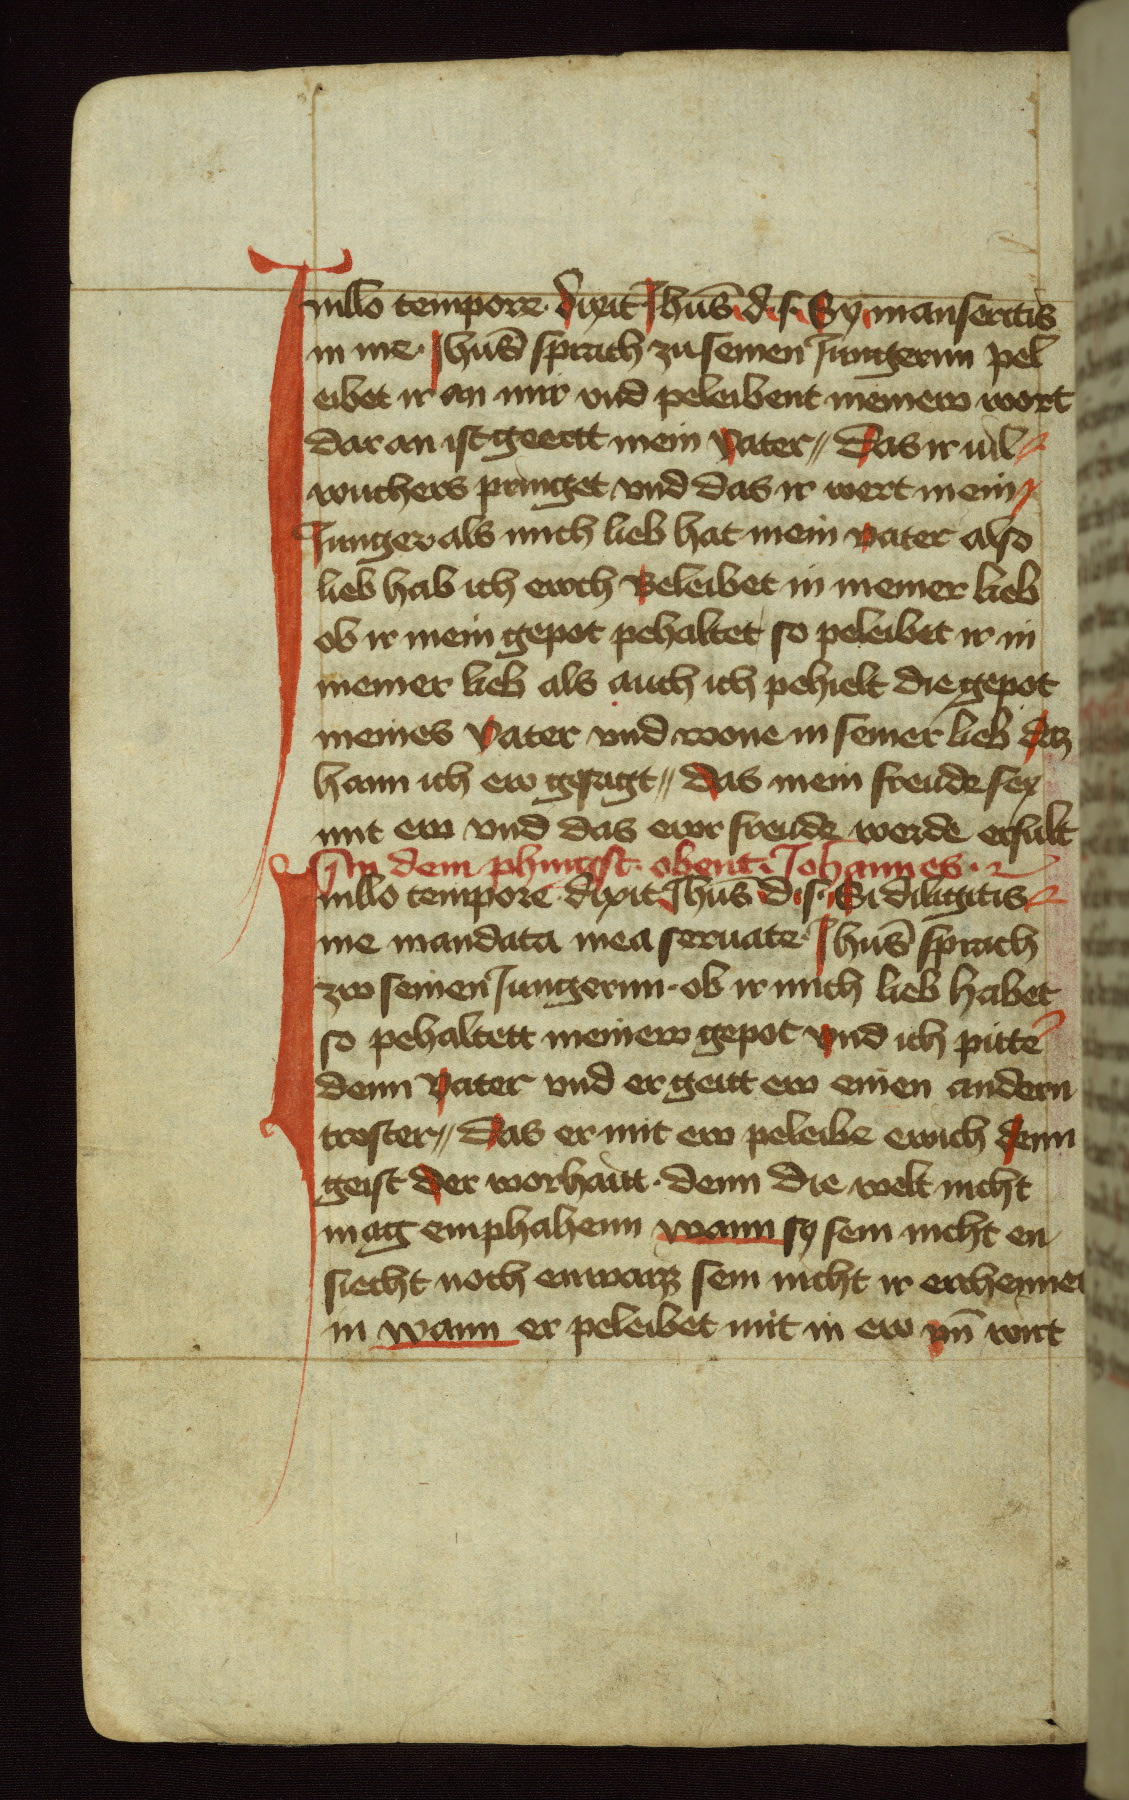 In illo tempore · dixit Jhūs · d · s · Sy manseritis
in me · Jhūs sprach zu seinen Jungernn pel
eibet ir an mir vnd peleibent meinew wort
dar an ist geertt mein vater // Das ir vil
wuchers pringet vnd das ir wert mein
Junger als mich lieb hat mein vater also
lieb hab ich ewch Beleibet in meiner lieb
ob ir mein gepot pehaltet so peleibet ir in
meiner lieb als auch ich pehielt die gepot
meines Vater vnd wone in seiner lieb daz
hann ich ew gesagt // das mein freude sey
mit ew vnd das ewr freude werde erfult
An dem phingst · obent · Johannes ·
In illo tempore · dixit Jhūs · d · s · Si diligitis
me mandata mea seruate · Jhūs sprach
zw seinen Jungernn · ob ir mich lieb habet
so pehaltett meinew gepot vnd ich pitte
denn Vater vnd er geitt ew einen andern
troster // Das er mit ew peleibe ewich denn
geist der worhaitt · denn die welt nicht
mag emphahenn wann sy sein nicht en
siecht noch enwaiz sein nicht ir erchennet
in wann er peleibet mit in ew vn̄ wirt